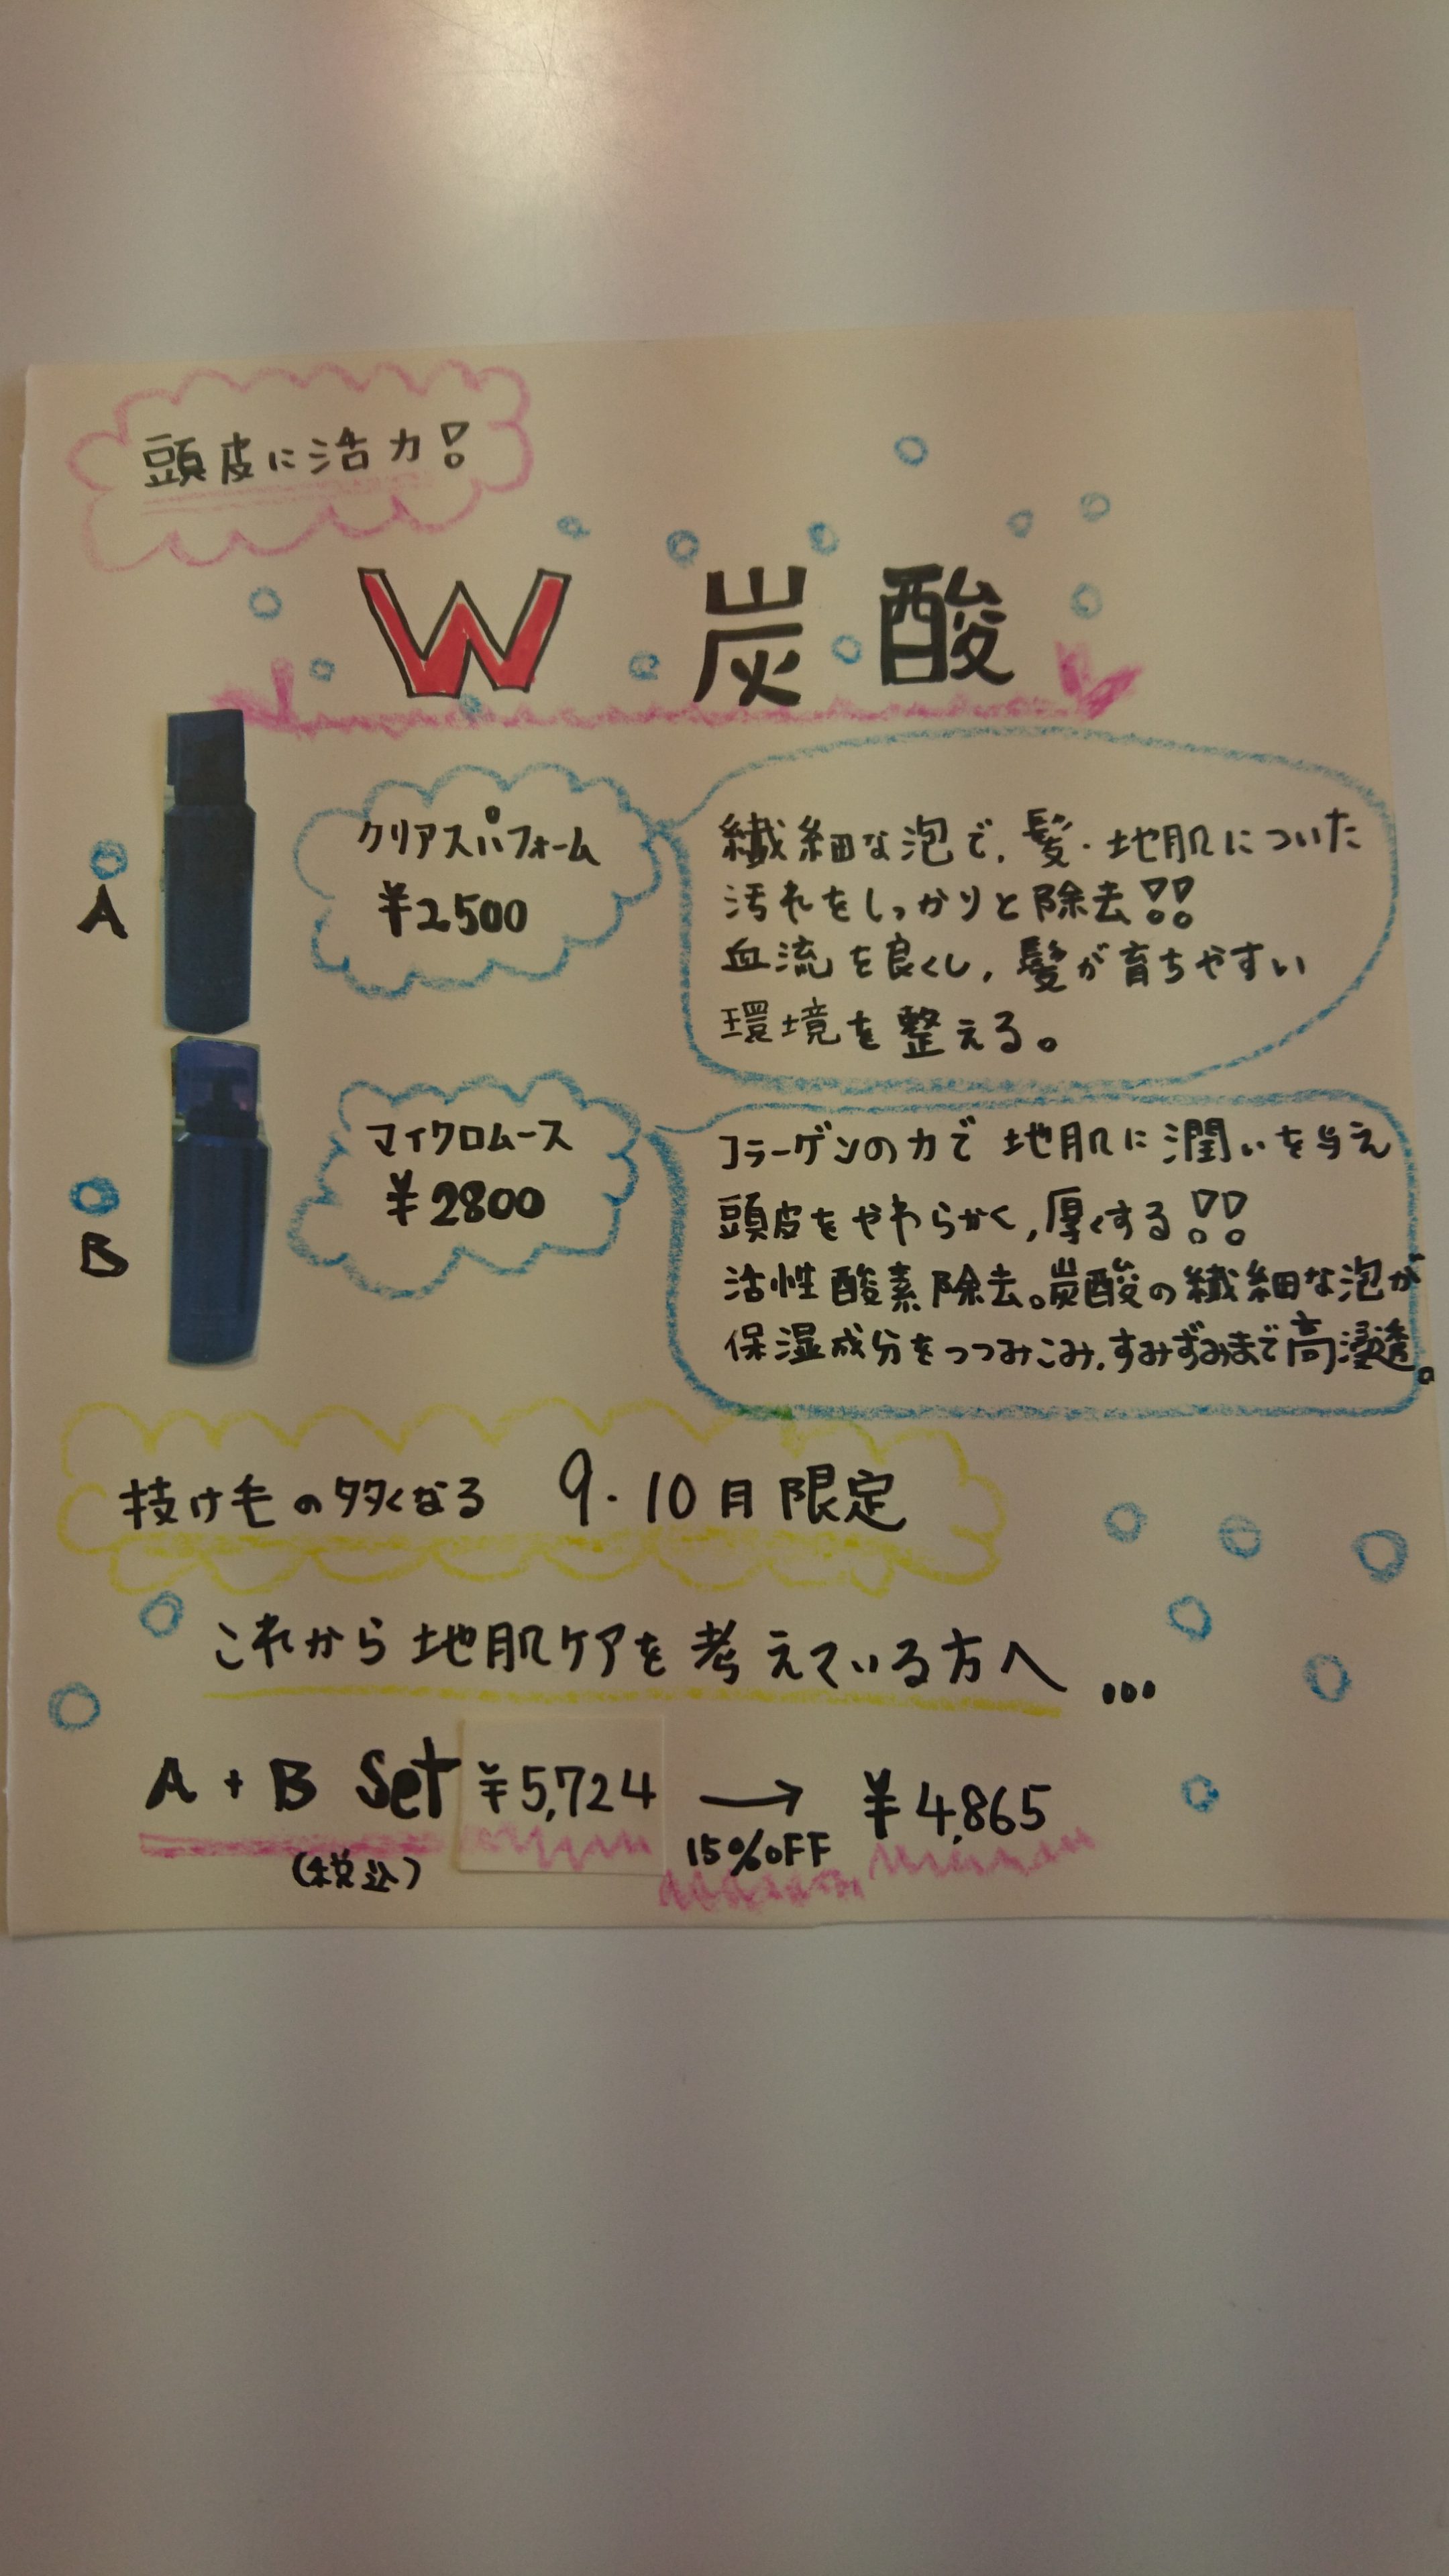 頭皮に活力!
W 炭酸
A
クリアスパフォーム
¥2500
繊細な泡で、髪・地肌についた
汚れをしっかりと除去!!
血流を良くし、髪が育ちやすい
環境を整える。
B
マイクロムース
¥2800
コラーゲンの力で地肌に潤いを与え
頭皮をやわらかく、厚くする!!
活性酸素除去。炭酸の繊細な泡が
保湿成分をつつみこみ、すみずみまで高浸透。
抜け毛の多くなる 9・10月限定
これから地肌ケアを考えている方へ...
A+B Set ¥5,724 → ¥4,865
(税込) 15%OFF